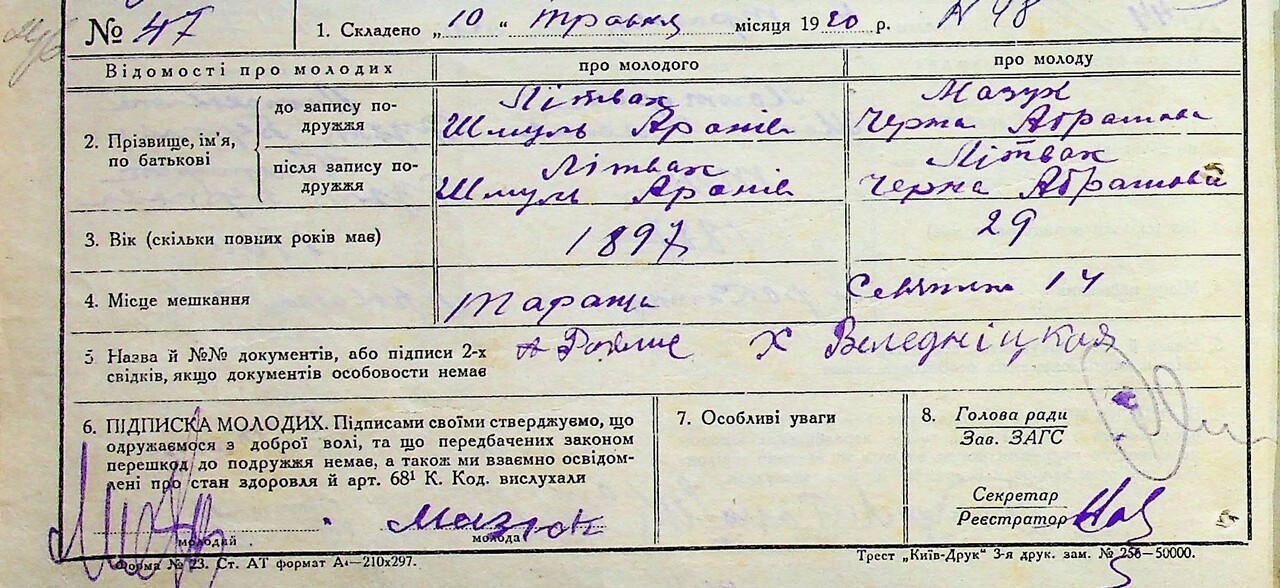 № 47
1. Складено „10“ травня місяця 1920 р. N 48
Відомості про молодих
про молодого
про молоду
2. Прізвище, ім'я, по батькові
до запису по-
дружжя
Літвак
Шмуль Аронів
Мазук
Черна Абрамова
після запису по-
дружжя
Літвак
Шмуль Аронів
Літвак
Черна Абрамова
3. Вік (скільки повних років має)
1897
29
4. Місце мешкання
Тараща
14
5 Назва й №№ документів, або підписи 2-х
свідків, якщо документів особовости немає
Х Веледніцкая
6. ПІДПИСКА МОЛОДИХ. Підписами своїми стверджуємо, що
одружаємося з доброї волі, та що передбачених законом
перешкод до подружжя немає, а також ми взаємно освідом-
лені про стан здоровля й арт. 68¹ К. Код. вислухали
молодий
молода
7. Особливі уваги
8. Голова ради
Зав. ЗАГС
Секретар
Реєстратор
Форма № 23. Ст. АТ формат А₄—210х297.
Трест „Київ-Друк“ 3-я друк. зам. № 256—50000.